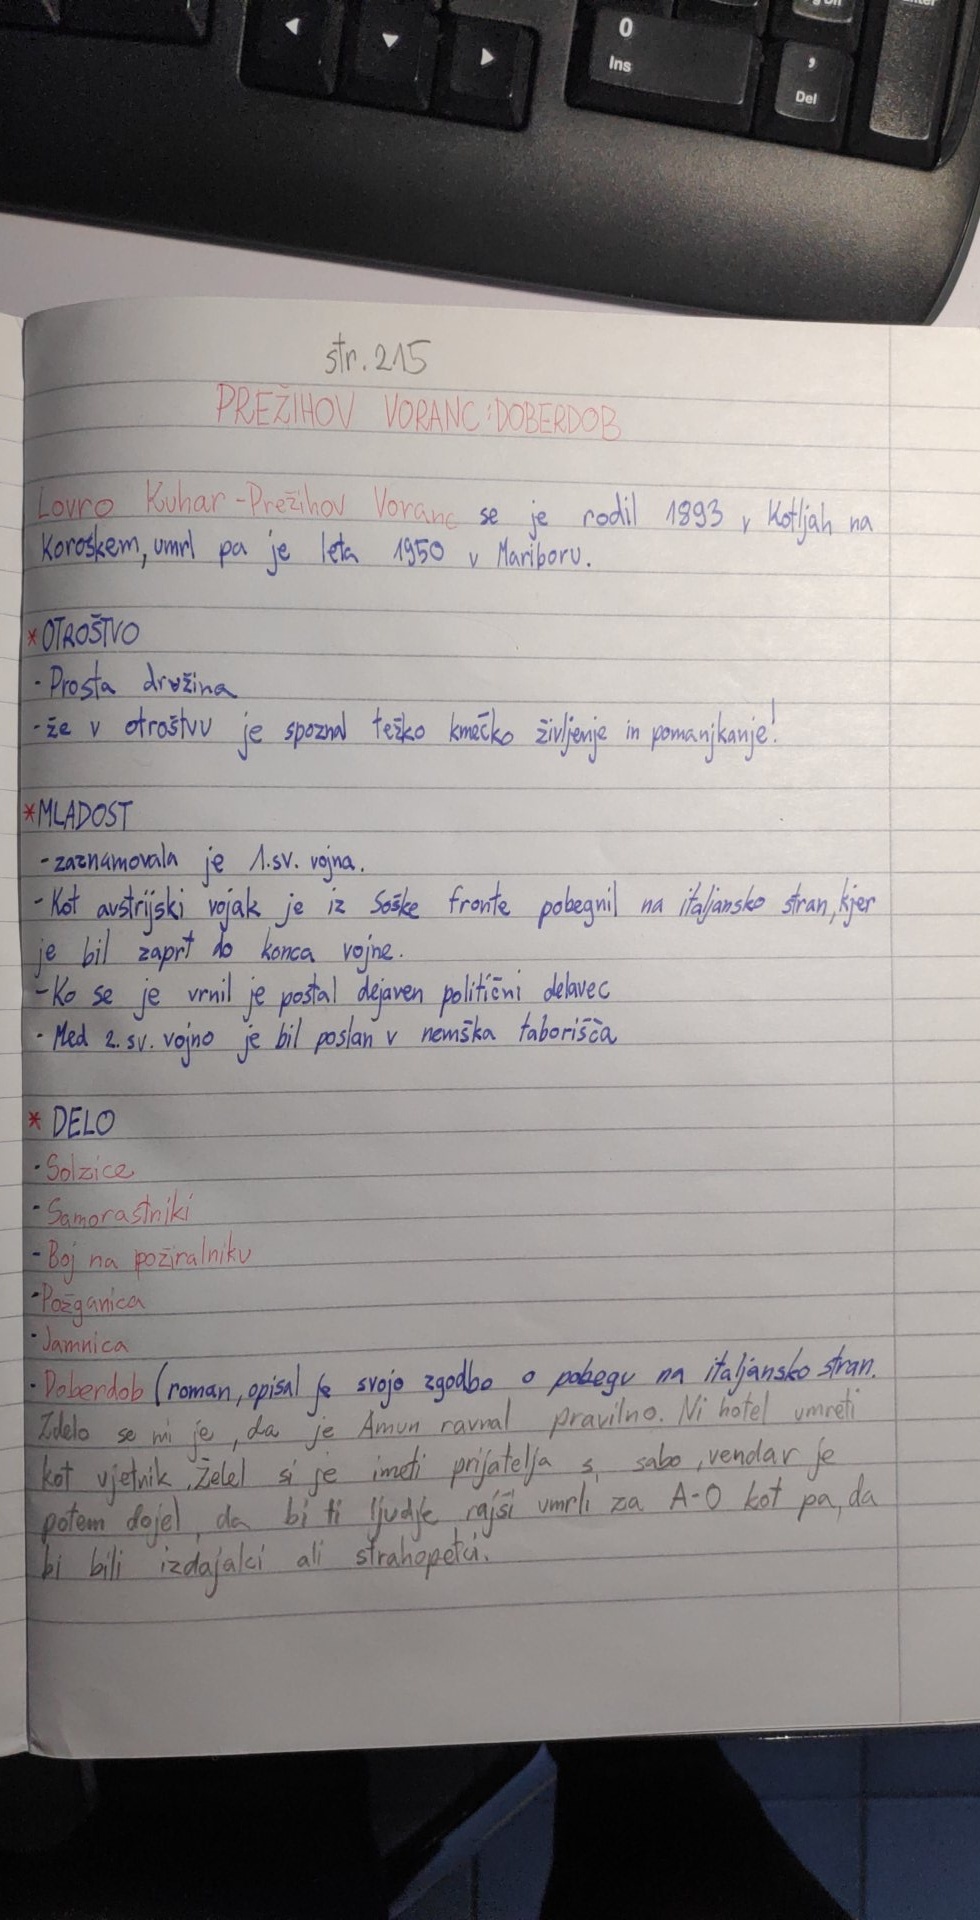 0
Ins
,
Del
str. 215
PREŽIHOV VORANC: DOBERDOB
Lovro Kuhar - Prežihov Voranc se je rodil 1893 v Kotljah na
Koroškem, umrl pa je leta 1950 v Mariboru.
* OTROŠTVO
- Prosta družina
- že v otroštvu je spoznal težko kmečko življenje in pomanjkanje!
* MLADOST
- zaznamovala je 1. sv. vojna.
- Kot avstrijski vojak je iz Soške fronte pobegnil na italjansko stran, kjer
je bil zaprt do konca vojne.
- Ko se je vrnil je postal dejaven politični delavec
- Med 2. sv. vojno je bil poslan v nemška taborišča
* DELO
- Solzice
- Samorastniki
- Boj na požiralniku
- Požganica
- Jamnica
- Doberdob (roman, opisal je svojo zgodbo o pobegu na italjansko stran.
Zdelo se mi je, da je Amun ravnal pravilno. Ni hotel umreti
kot vjetnik. Želel si je imeti prijatelja s sabo, vendar je
potem dojel, da bi ti ljudje rajši umrli za A-O kot pa, da
bi bili izdajalci ali strahopetci.